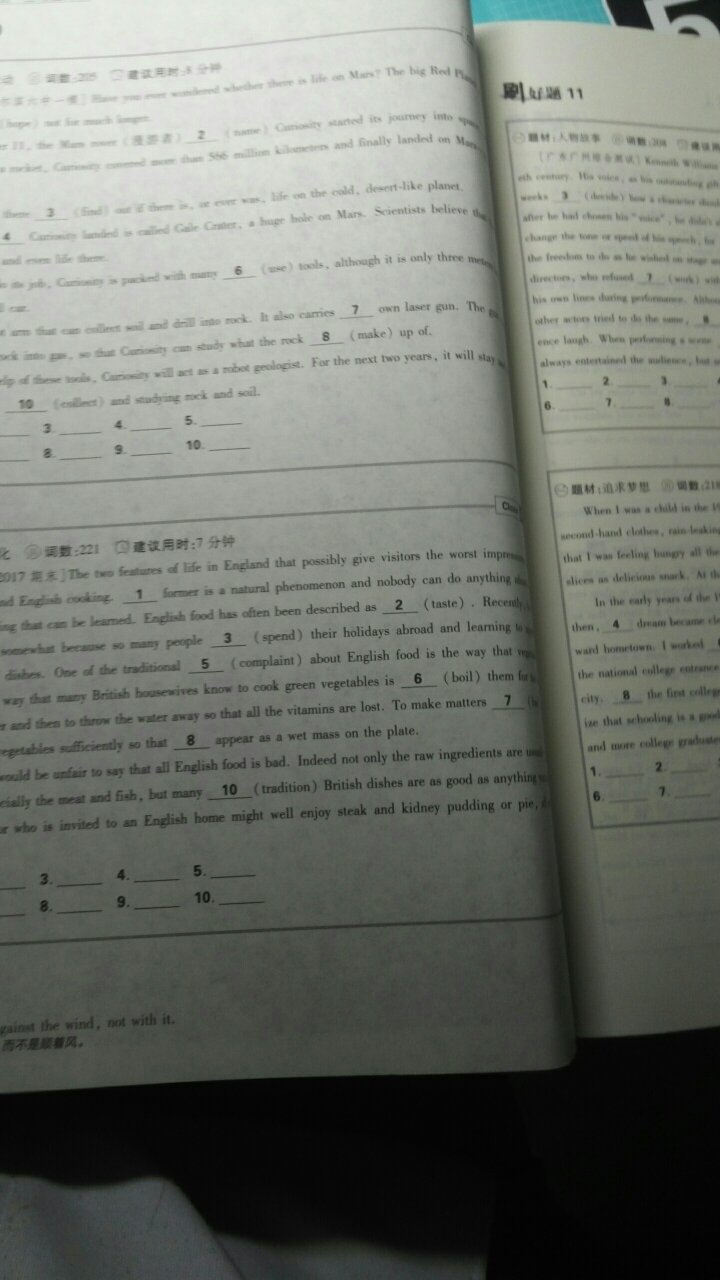 动 词数:205 建议用时:8 分钟
Have you ever wondered whether there is life on Mars? The big Red
(hope) not for much longer.
11, the Mars rover (漫游者) 2 (name) Curiosity started its journey into
rocket, Curiosity covered more than 566 million kilometers and finally landed on Mars
there 3 (find) out if there is, or ever was, life on the cold, desert-like planet.
4 Curiosity landed is called Gale Crater, a huge hole on Mars. Scientists believe
and even life there.
its job, Curiosity is packed with many 6 (use) tools, although it is only three
car.
arm that can collect soil and drill into rock. It also carries 7 own laser gun. The
into gas, so that Curiosity can study what the rock 8 (make) up of.
of these tools, Curiosity will act as a robot geologist. For the next two years, it will stay
10 (collect) and studying rock and soil.
3. 4. 5.
8. 9. 10.
化 词数:221 建议用时:7 分钟
2017 期末]The two features of life in England that possibly give visitors the worst
English cooking. 1 former is a natural phenomenon and nobody can do anything
that can be learned. English food has often been described as 2 (taste). Recently,
somewhat because so many people 3 (spend) their holidays abroad and learning to
dishes. One of the traditional 5 (complaint) about English food is the way that
way that many British housewives know to cook green vegetables is 6 (boil) them for
and then to throw the water away so that all the vitamins are lost. To make matters 7
vegetables sufficiently so that 8 appear as a wet mass on the plate.
would be unfair to say that all English food is bad. Indeed not only the raw ingredients are
the meat and fish, but many 10 (tradition) British dishes are as good as anything
who is invited to an English home might well enjoy steak and kidney pudding or pie,
3. 4. 5.
8. 9. 10.
gainst the wind, not with it.
而不是顺着风。
刷好题 11
题材:人物故事 词数:208
[广东广州综合测试] Kenneth
century. His voice, as his outstanding
weeks 3 (decide) how a character
after he had chosen his "voice", he didn't
change the tone or speed of his speech, for
the freedom to do as he wished on stage
directors, who refused 7 (work)
his own lines during performance.
other actors tried to do the same, 8
ence laugh. When performing a scene
always entertained the audience, but
1. 2. 3.
6. 7. 8.
题材:追求梦想 词数:218
When I was a child in the
second-hand clothes, rain-leaking
that I was feeling hungry all the
slices as delicious snack. At
In the early years of the
then, 4 dream became
ward hometown. I worked
the national college entrance
city. 8 the first college
ize that schooling is a good
and more college graduate
1. 2.
6. 7.